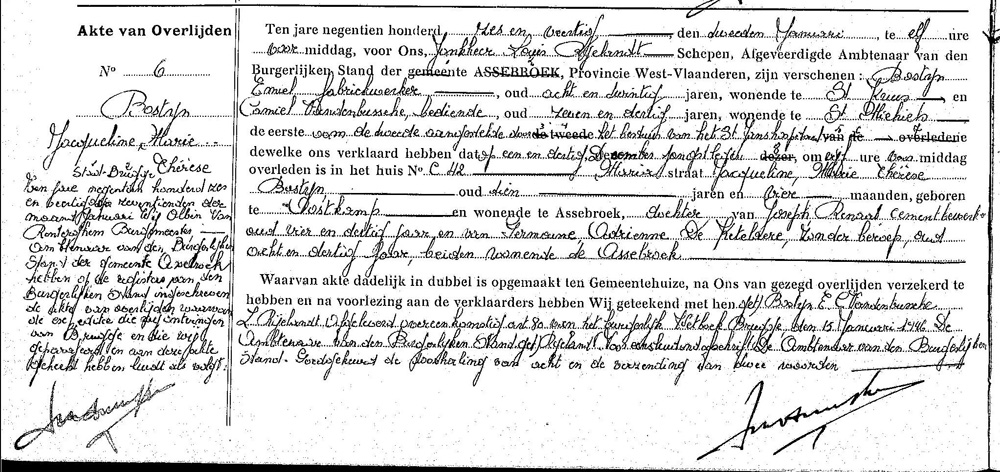 Akte van Overlijden
N° 6
Bostijn
Jacqueline, Marie
Thérèse
Staat-Brugge
Ten jare negentien honderd zes
en veertig, den zeventienden der
maand Januari Wij Albin Van
Renterghem Burgemeester
Ambtenaar van den Burgerlijken
Stand der gemeente Assebroek
hebben op de registers van den
Burgerlijken Stand ingeschreven
de akte van overlijden waarvan
de expeditie die wij ontvingen
van Brugge en die wij
geparafeerd en aan deze akte
gehecht hebben luidt als volgt:
Ten jare negentien honderd zes en veertig den tweeden Januari te elf ure
voor middag, voor Ons, Jonkheer Louis Schepen, Afgeveerdigde Ambtenaar van den
Burgerlijken Stand der gemeente ASSEBROEK, Provincie West-Vlaanderen, zijn verschenen: Bostijn
Emiel fabriekwerker, oud acht en jaren, wonende te St Kruis, en
Camiel Vandenbussche, bediende, oud zeven en dertig jaren, wonende te St Michiels
de eerste oom de tweede aangestelde tweede het bestuur van het St Janshospitaal van de overledene
dewelke ons verklaard hebben dat op een en dertig December jongstleden dezer, om elf ure voor middag
overleden is in het huis N° C. 42 straat Jacqueline Marie Thérèse
Bostijn oud tien jaren en vier maanden, geboren
te Oostkamp en wonende te Assebroek, dochter van Joseph Renaat cementbewerker
oud vier en dertig jaar en van Germaine Adrienne De Ketelaere, zonder beroep, oud
acht en dertig jaar, beiden wonende te Assebroek
Waarvan akte dadelijk in dubbel is opgemaakt ten Gemeentehuize, na Ons van gezegd overlijden verzekerd te
hebben en na voorlezing aan de verklaarders hebben Wij geteekend met hen get) Bostijn E. Vandenbussche
L Afgeleverd overeenkomstig art 80 van het burgerlijk Wetboek Brugge, den 15 Januari 1946 De
Ambtenaar van den Burgerlijken Stand get) Voor eensluidend afschrift De Ambtenaar van den Burgerlijken
Stand. Goedgekeurd de doorhaling van acht en de verzending van twee woorden